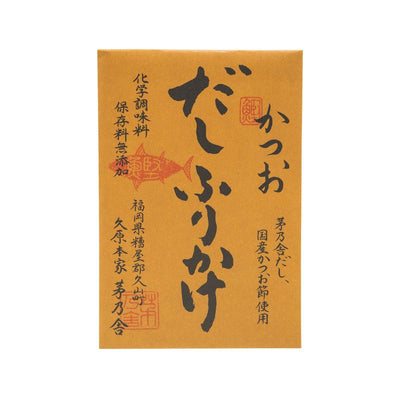 かつお
だしふりかけ
茅乃舎だし、
国産かつお節使用
化学調味料
保存料無添加
福岡県糟屋郡久山町
久原本家 茅乃舎